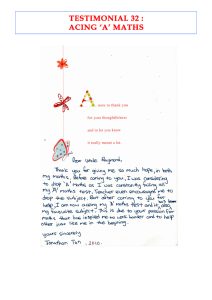 TESTIMONIAL 32 :
ACING 'A' MATHS
A note to thank you
for your thoughtfulness
and to let you know
it really meant a lot.
Dear Uncle Raymond,
Thank you for giving me so much hope, in both
my maths. Before coming to you, I was considering
to drop 'A' Maths as I was constantly failing all
my 'A' maths test. Teacher even encouraged me to
drop the subject. But after coming to you for
help, I am now acing my 'A' maths test and it also
my favourite subject. This is due to your passion for
maths that has inspired me to work harder and to help
other just like me in the begining
Yours sincerely
Jonathan Tan, 2010.